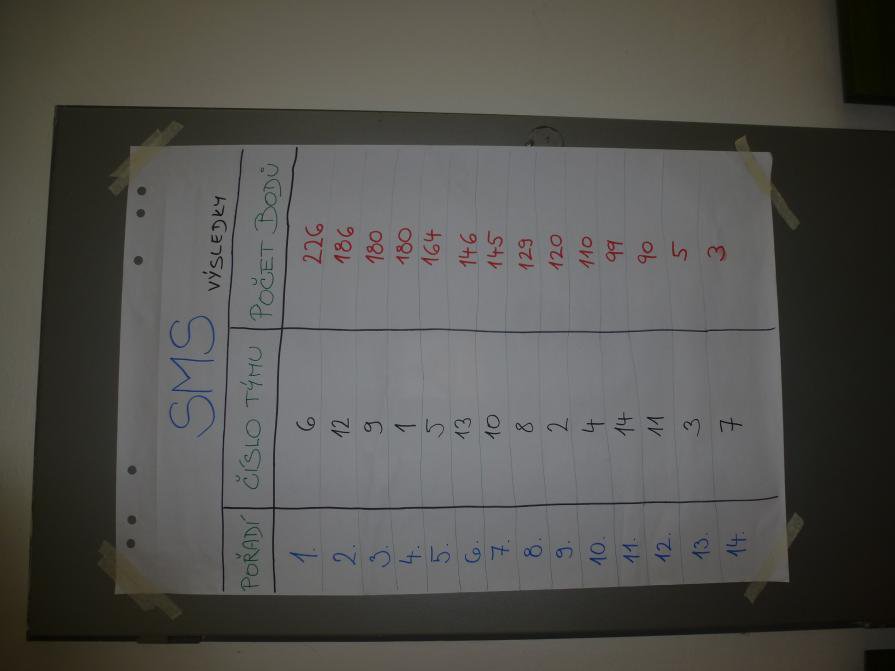 SMS
VÝSLEDKY
POŘADÍ ČÍSLO TÝMU POČET BODŮ
1. 6 226
2. 12 186
3. 9 180
4. 1 180
5. 5 164
6. 13 146
7. 10 145
8. 8 129
9. 2 120
10. 4 110
11. 14 99
12. 11 90
13. 3 5
14. 7 3